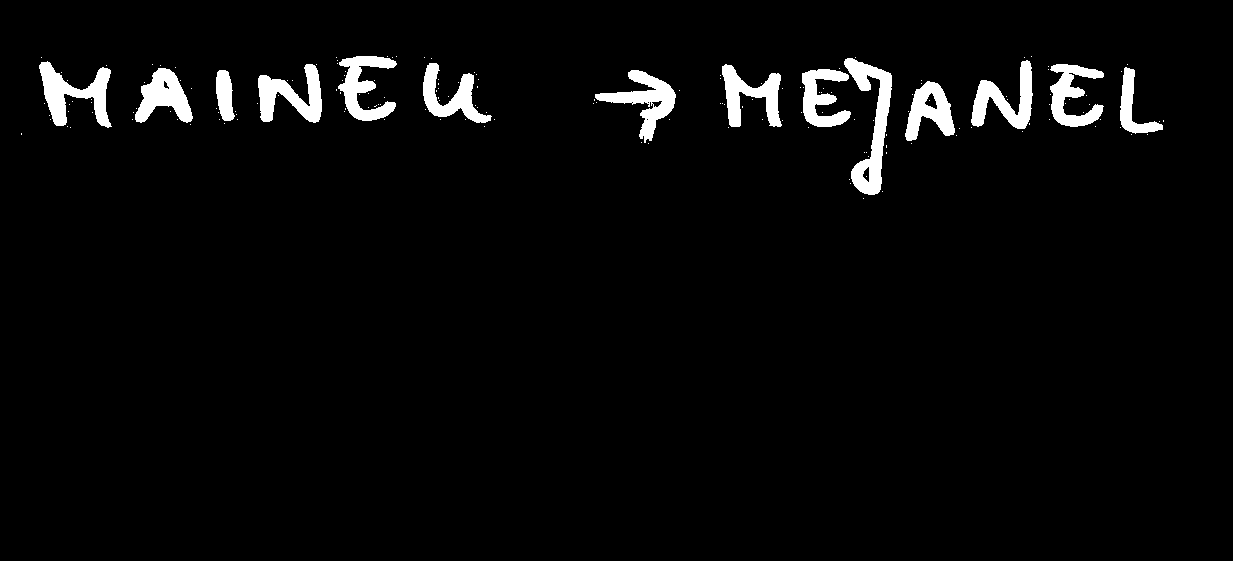 MAINEU → MEJANEL